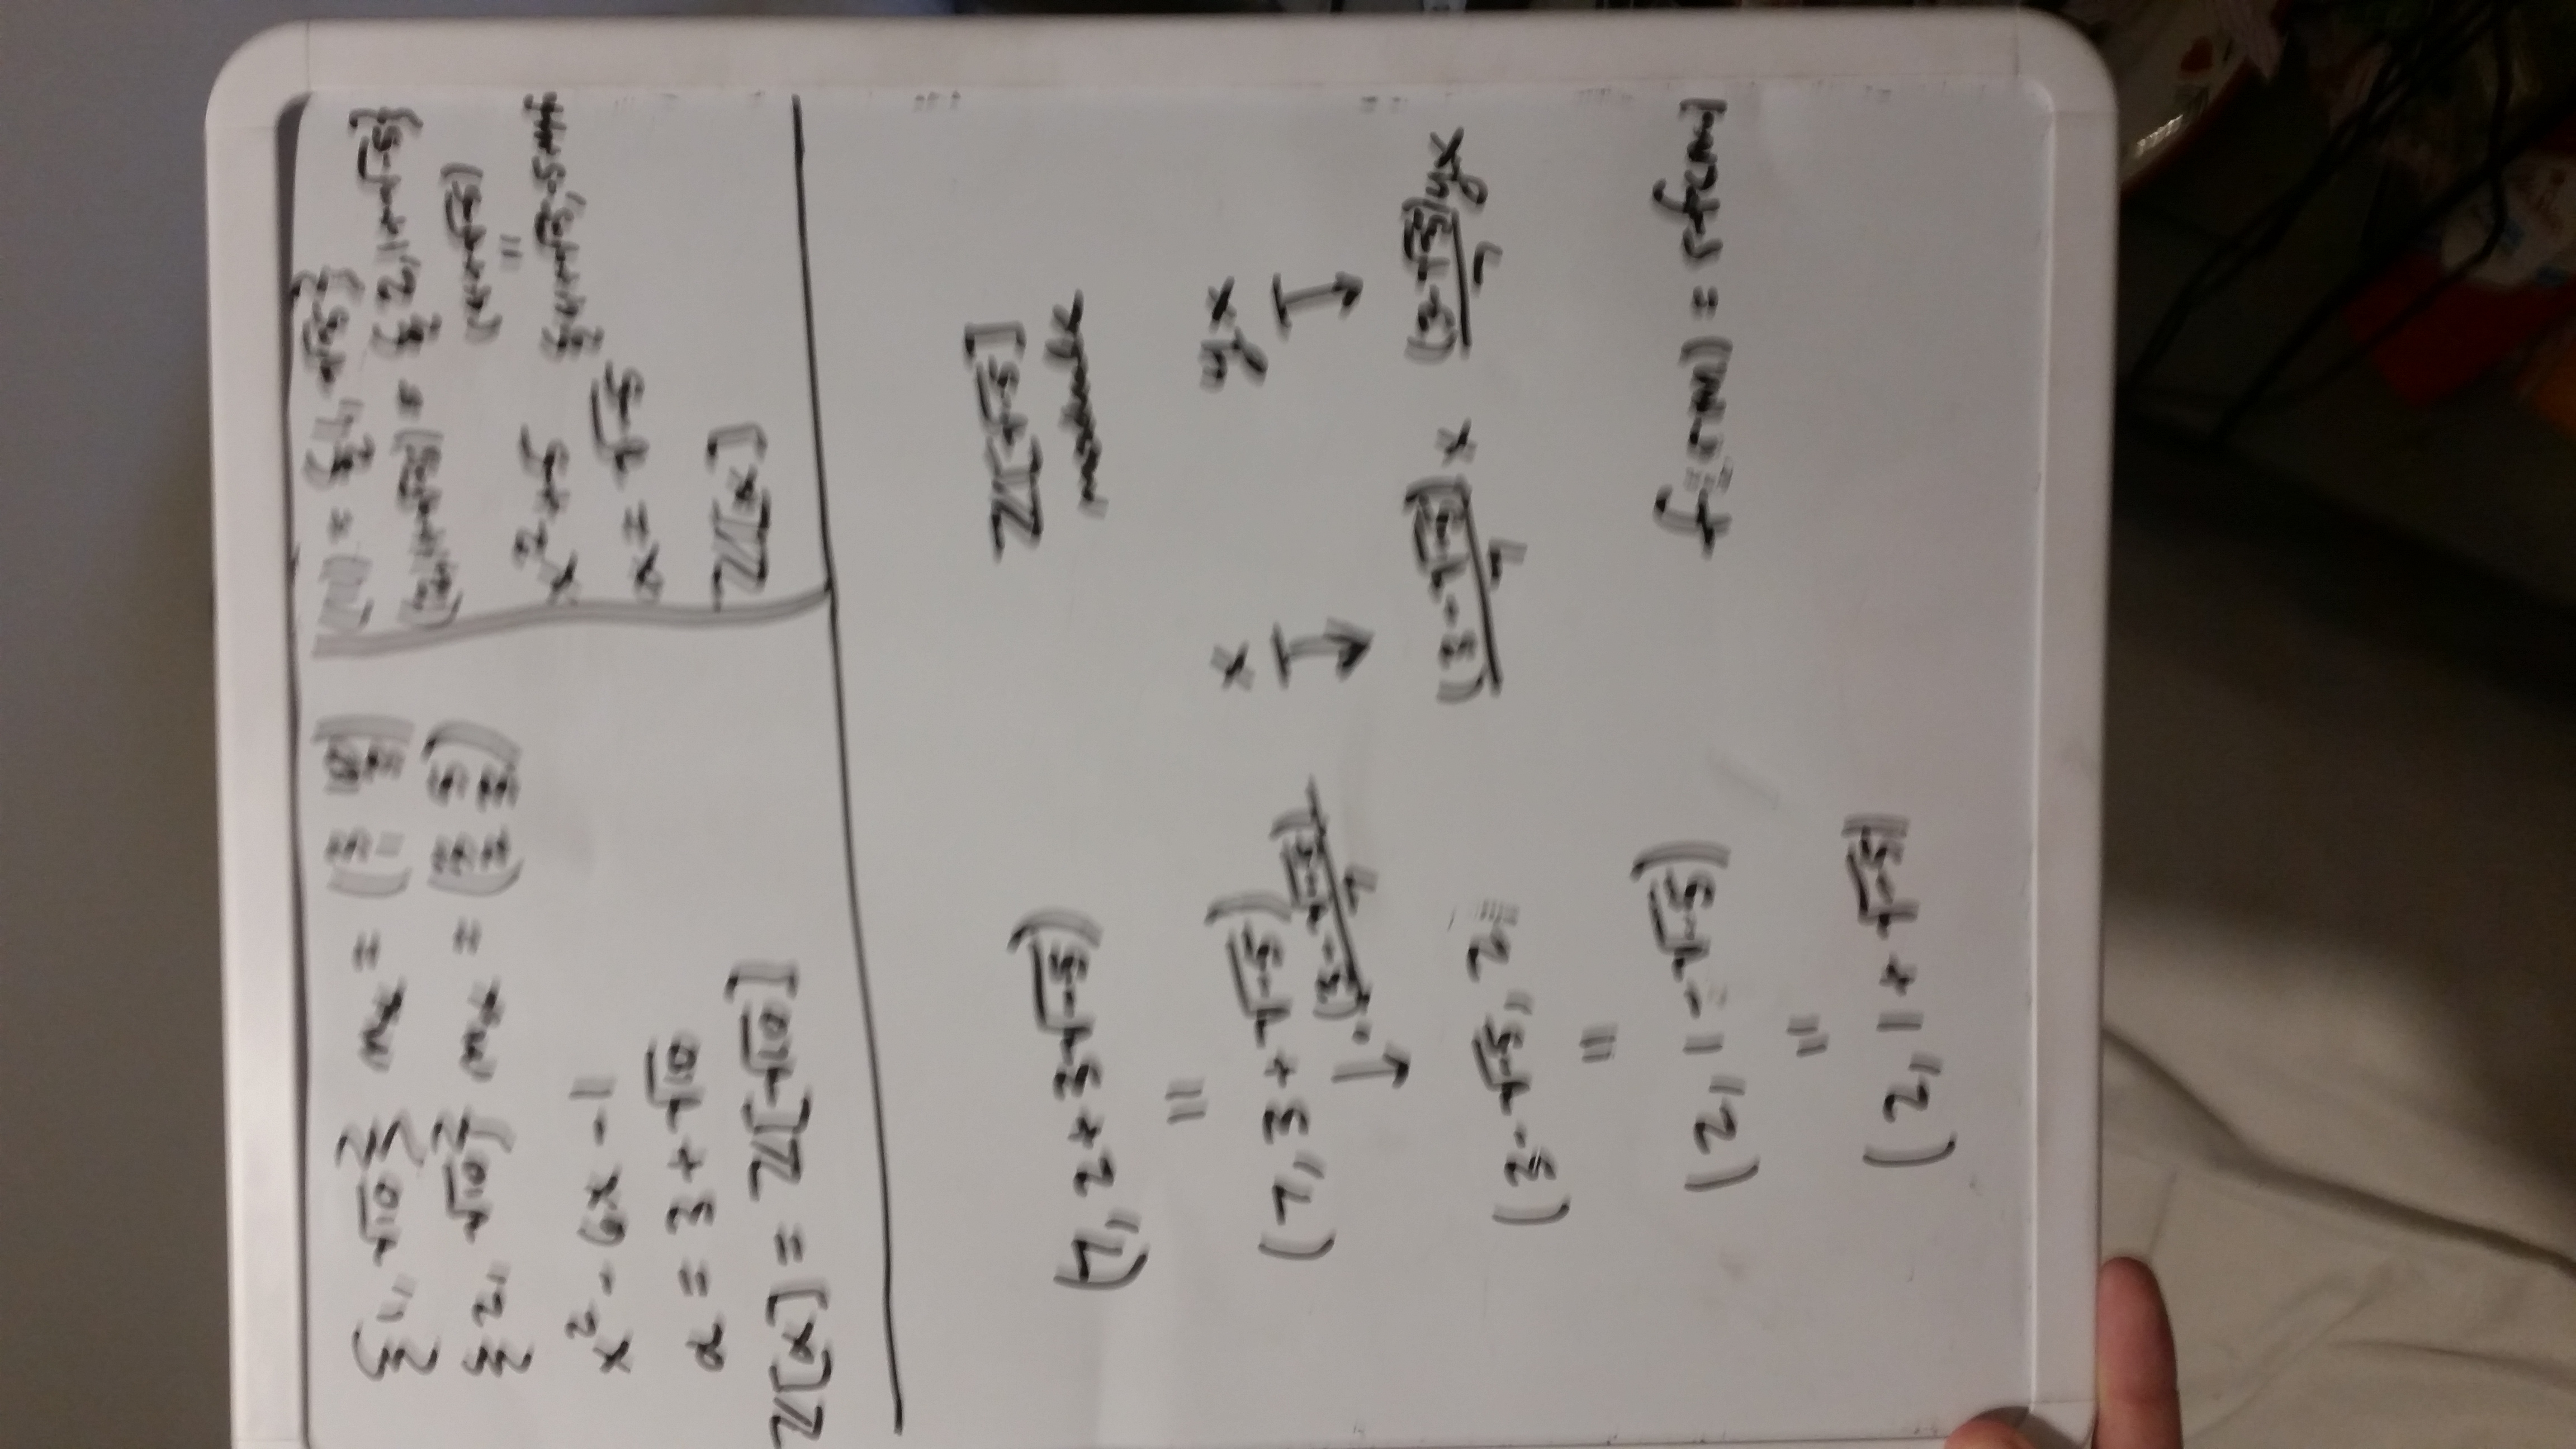 {1, √10} mα = (3 10
1 3)
{2, √10} mα = (3 5
2 3)
x² - 6x - 1
α = 3 + √10
Z[α] = Z[√10]
(1) = {1, √-5}
(2, 1+√-5) = {2, 1+√-5}
(4+√-5)
=
{4+√-5, -5+4√-5
x² + 5
α = √-5
Z[α]
(7, 2 + 3√-5)
=
(7, 3 + √-5)
↓ · (3 - √-5)/7
(3 - √-5, 2)
=
(2, 1 - √-5)
=
(2, 1 + √-5)
Z[√-5]
module
x yx
↧ ↧
(3 - √-5)/7 x (3 - √-5)/7 yx
f(rm) = rf(m)